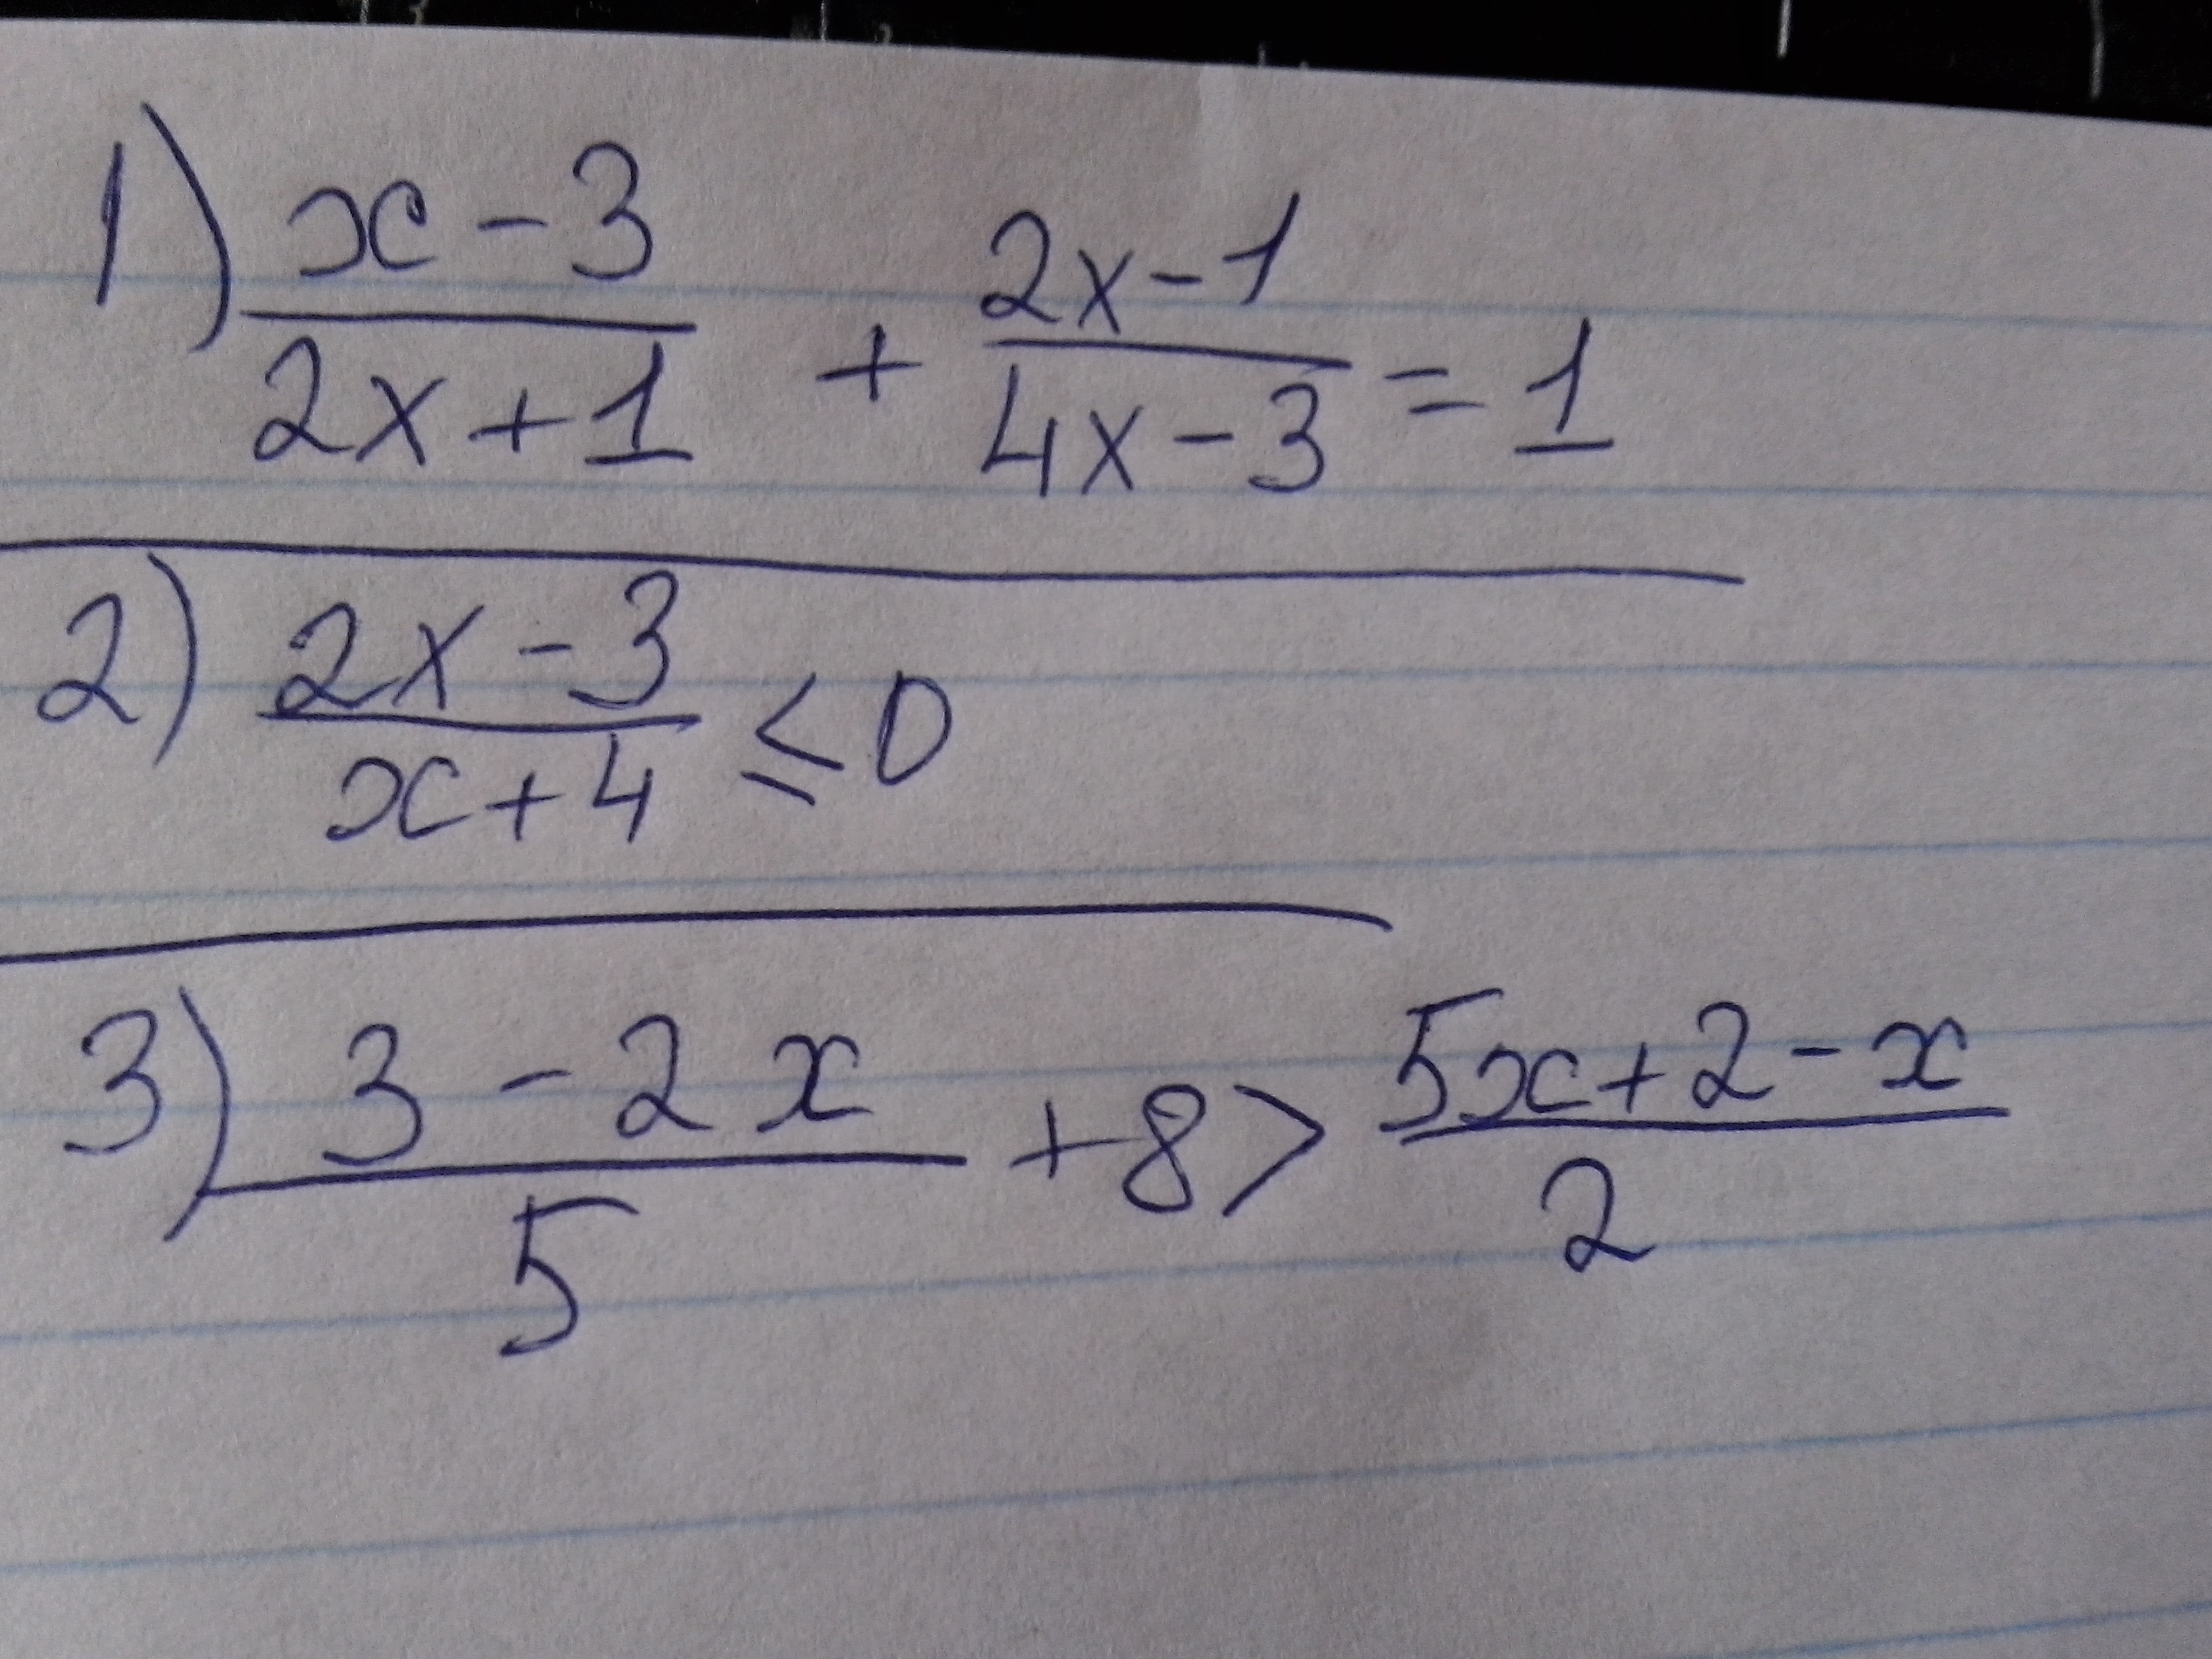 1) (x-3)/(2x+1) + (2x-1)/(4x-3) = 1
2) (2x-3)/(x+4) ≤ 0
3) (3-2x)/5 + 8 > (5x+2-x)/2